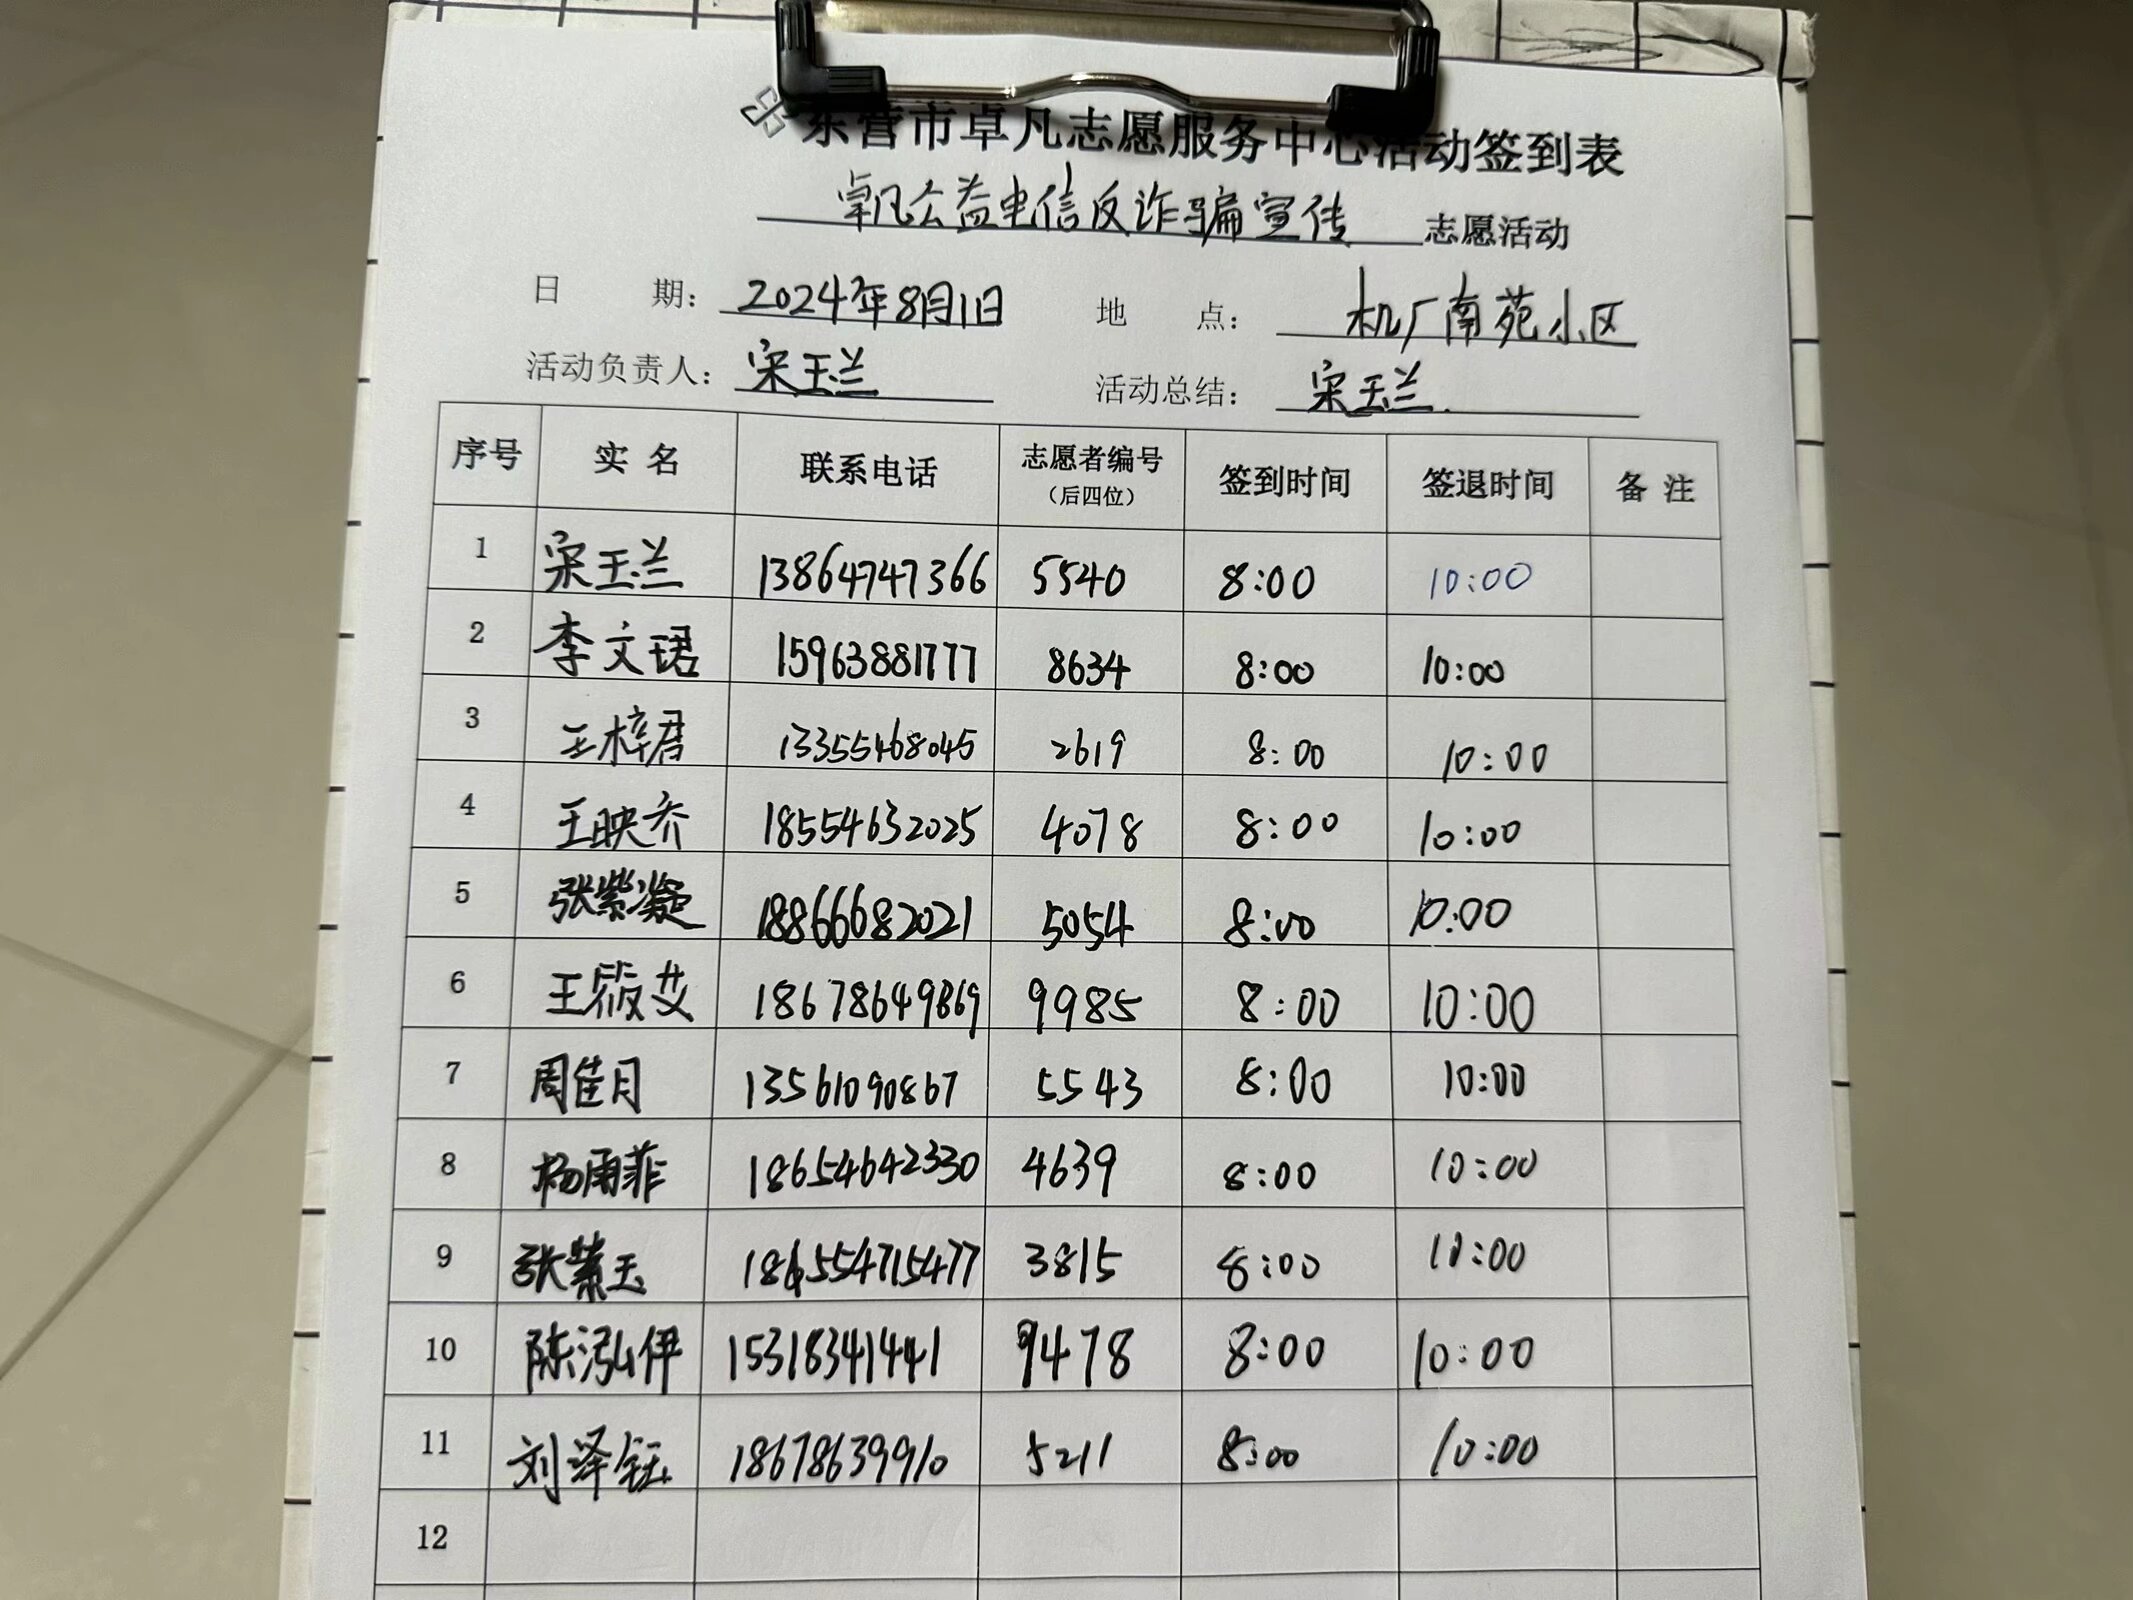 东营市卓凡志愿服务中心活动签到表
卓凡公益电信反诈骗宣传 志愿活动
日 期： 2024年8月1日 地 点： 机厂南苑小区
活动负责人： 宋玉兰 活动总结： 宋玉兰
序号 实 名 联系电话 志愿者编号（后四位） 签到时间 签退时间 备 注
1 宋玉兰 13864747366 5540 8:00 10:00
2 李文珺 15963881777 8634 8:00 10:00
3 王梓君 13355468045 2619 8:00 10:00
4 王映乔 18554632025 4078 8:00 10:00
5 张紫凝 18866682021 5054 8:00 10:00
6 王筱艾 18678649869 9985 8:00 10:00
7 周佳月 13561090867 5543 8:00 10:00
8 杨雨菲 18654642330 4639 8:00 10:00
9 张紫玉 186554715477 3815 8:00 10:00
10 陈泓伊 15318341441 9478 8:00 10:00
11 刘泽钰 18678639910 5211 8:00 10:00
12